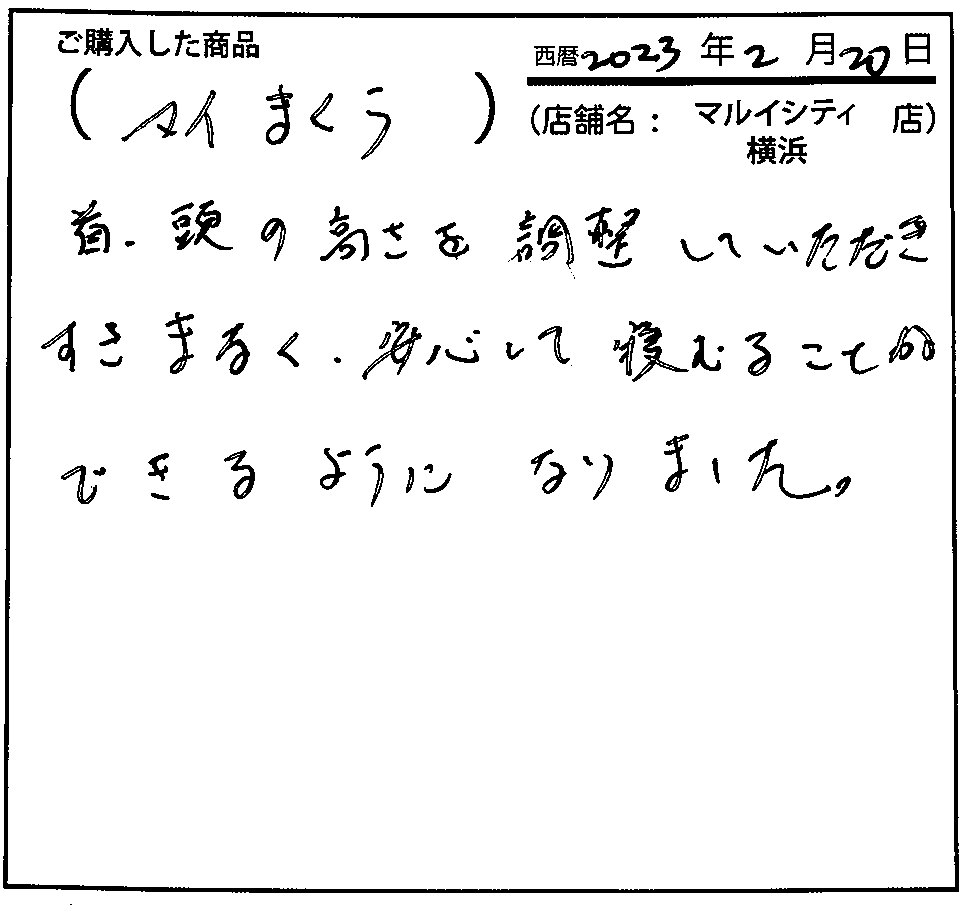 ご購入した商品
西暦2023年2月20日
(マイまくら)
(店舗名：マルイシティ横浜店)
首・頭の高さを調整していただき
すきまなく、安心して寝むることが
できるようになりました。